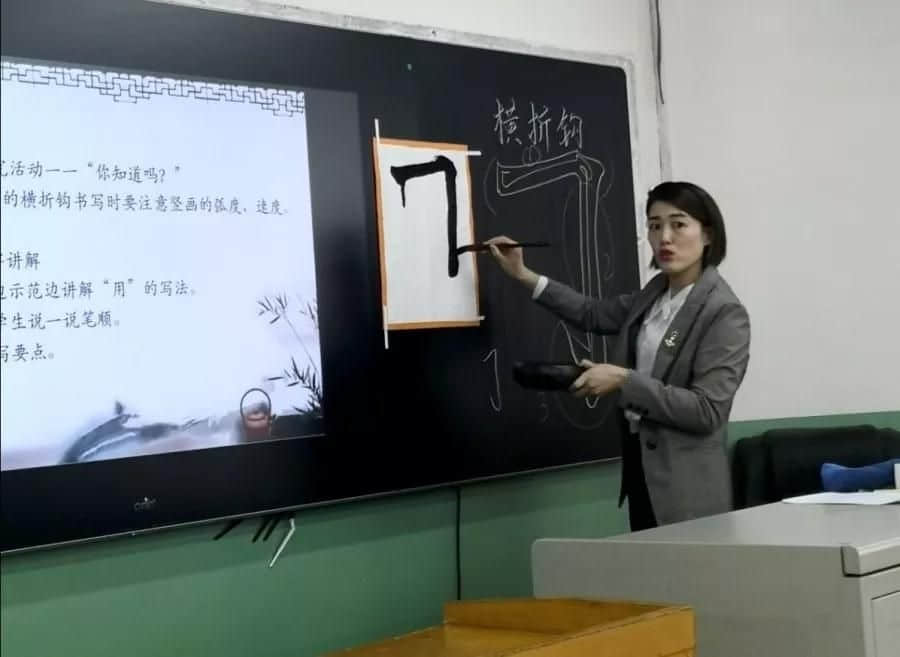 活动——“你知道吗？”
的横折钩书写时要注意竖画的弧度、速度。
讲解
示范边讲解“用”的写法。
学生说一说笔顺。
写要点。
横折钩
1
2
3